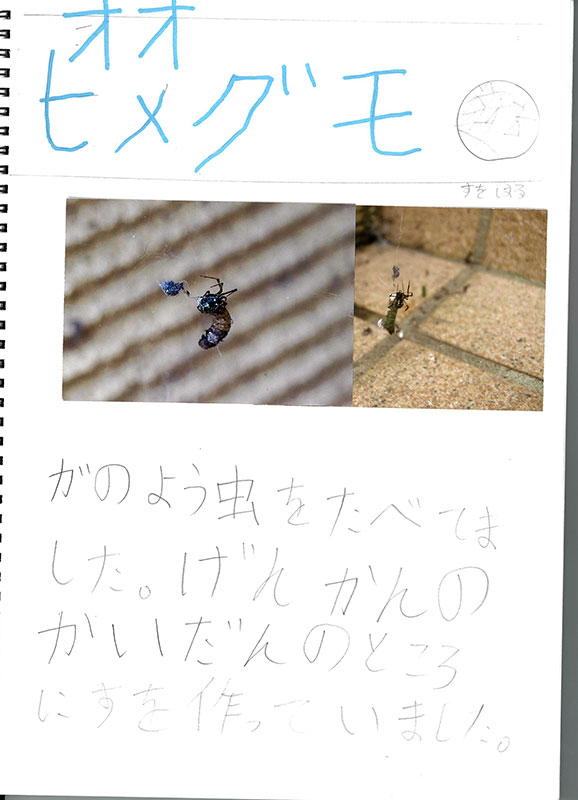 オオ
ヒメグモ
すをはる
がのよう虫をたべてま
した。げんかんの
かいだんのところ
にすを作っていました。